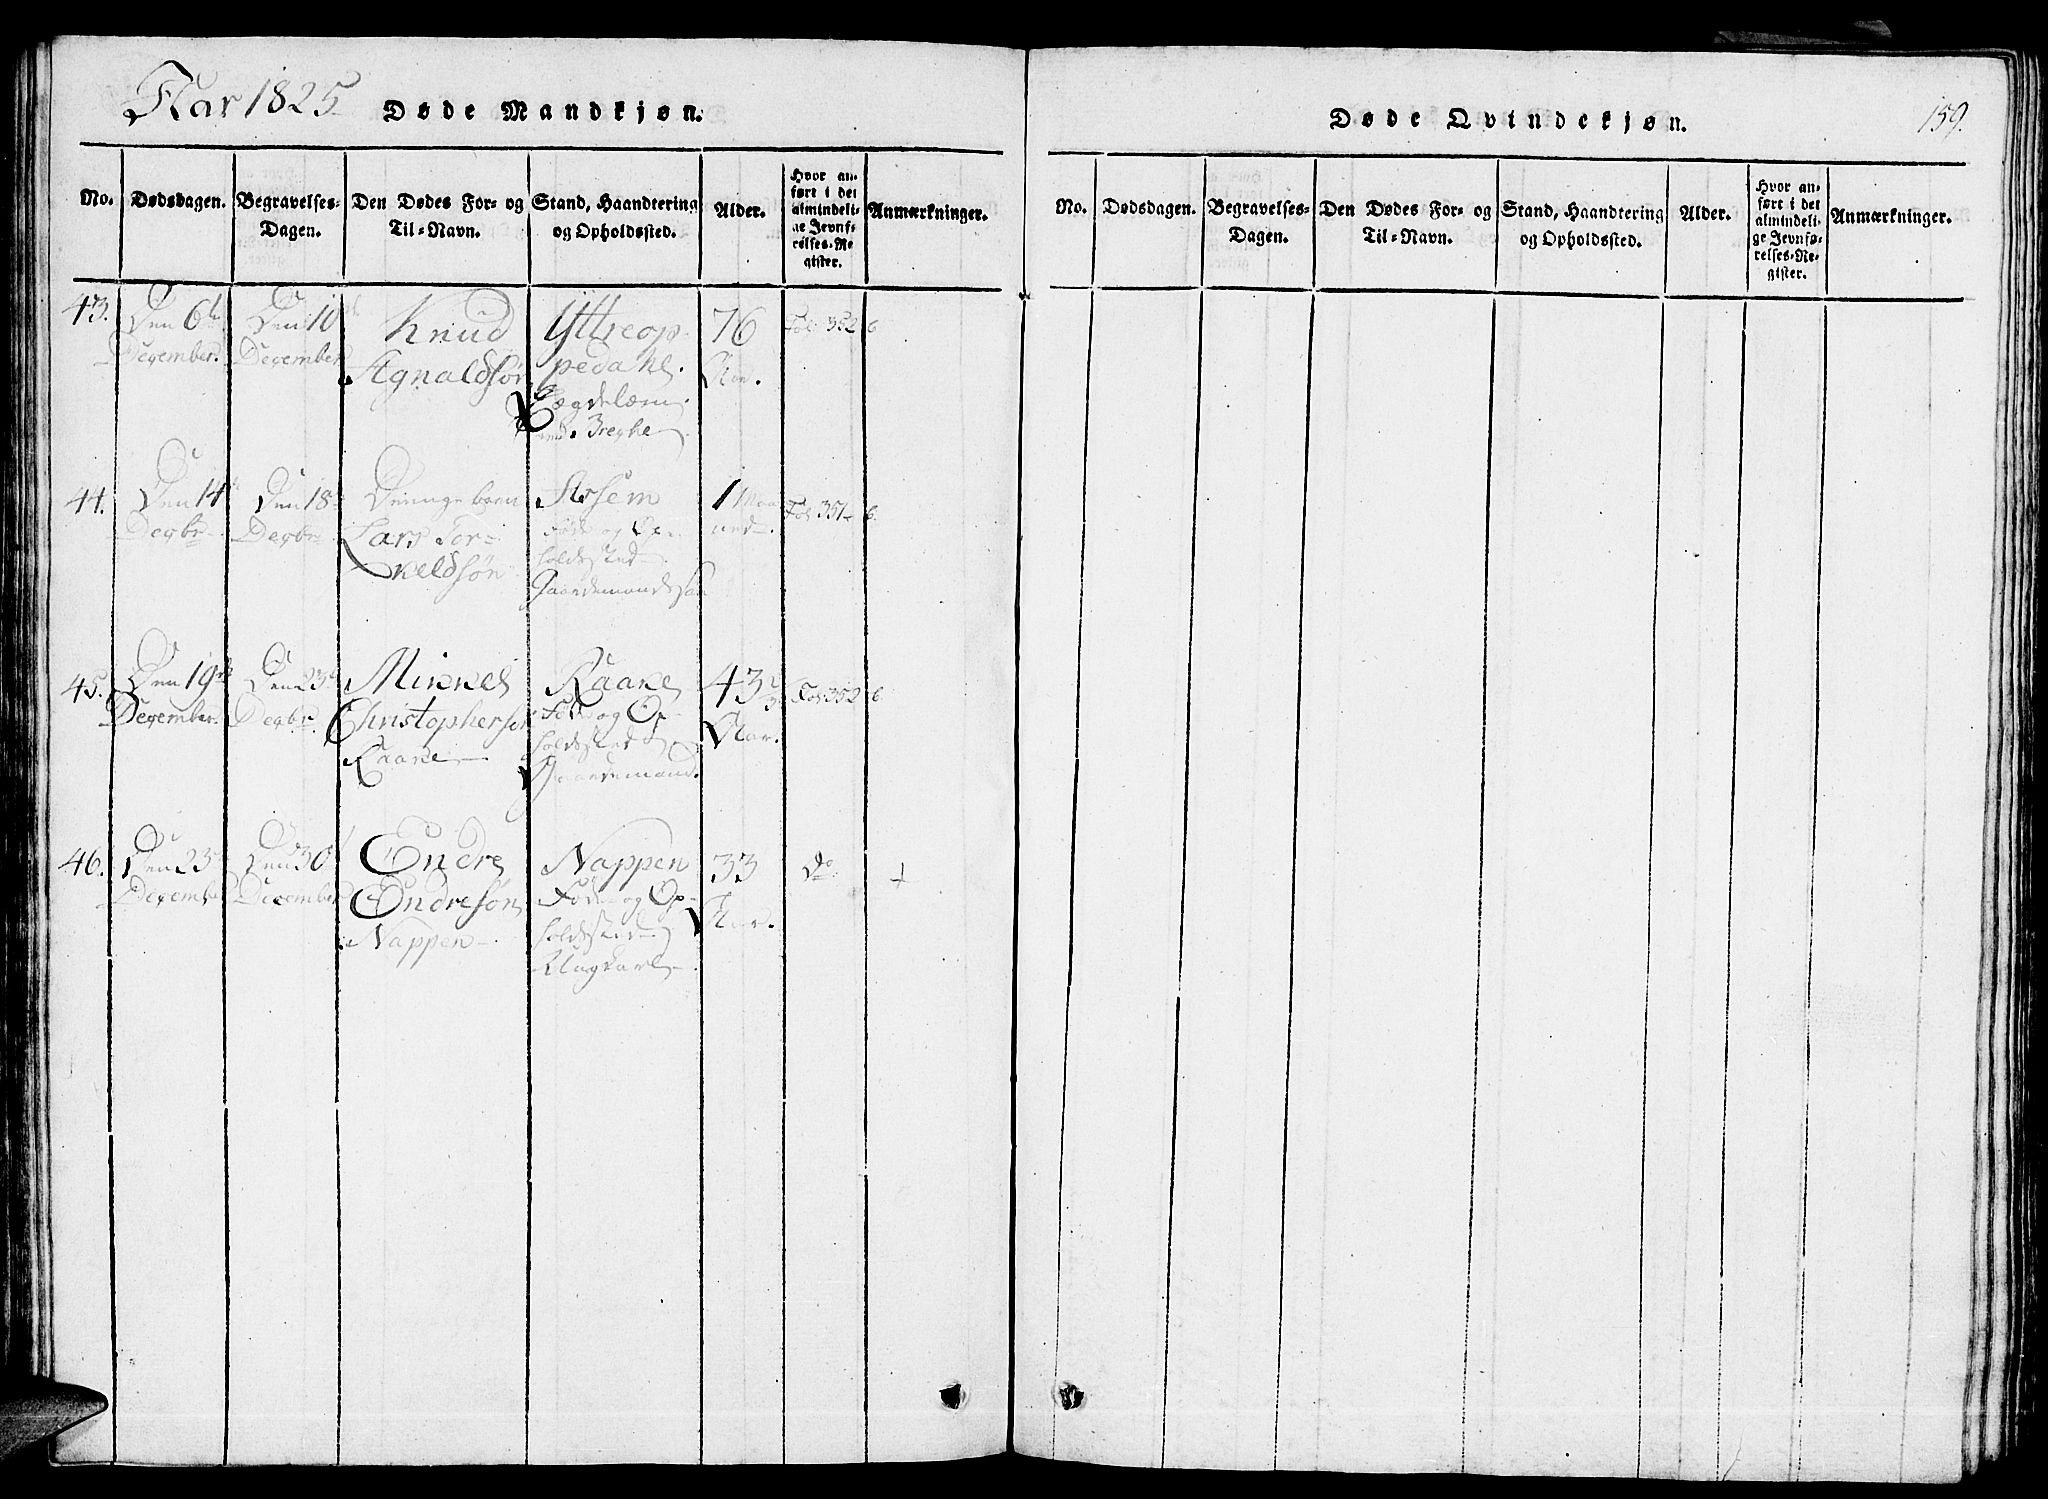 Aar 1825
Døde Mandkjøn.
No. Dødsdagen. Begravelses-Dagen. Den Dødes For- og Til-Navn. Stand, Haandtering og Opholdssted. Alder. Hvor anført i det almindelige Jevnførelses-Register. Anmærkninger.
43. Den 6te December. Den 10de December Knud Agnaldsøn Yttreoppedahl. 76 Aar. Fol: 352 6
44. Den 14de Decbr Den 18de Decbr Lars Torkeldsøn Afsem Føde og Opholdssted Gaardemands søn 1 Maaned. Fol 351 6.
45. Den 19de December. Den 23de Decbr. Mikkel Christophersøn Raake Raake Føde og Opholdssted Gaardemand. 43 2/3 Aar. Fol 352 6
46. Den 23de December Den 30 December Endre Endresøn Nappen Nappen Føde og Opholdssted Ungkarl 33 Aar. do.
Døde Qvindekjøn.
159.
No. Dødsdagen. Begravelses-Dagen. Den Dødes For- og Til-Navn. Stand, Haandtering og Opholdssted. Alder. Hvor anført i det almindelige Jevnførelses-Register. Anmærkninger.